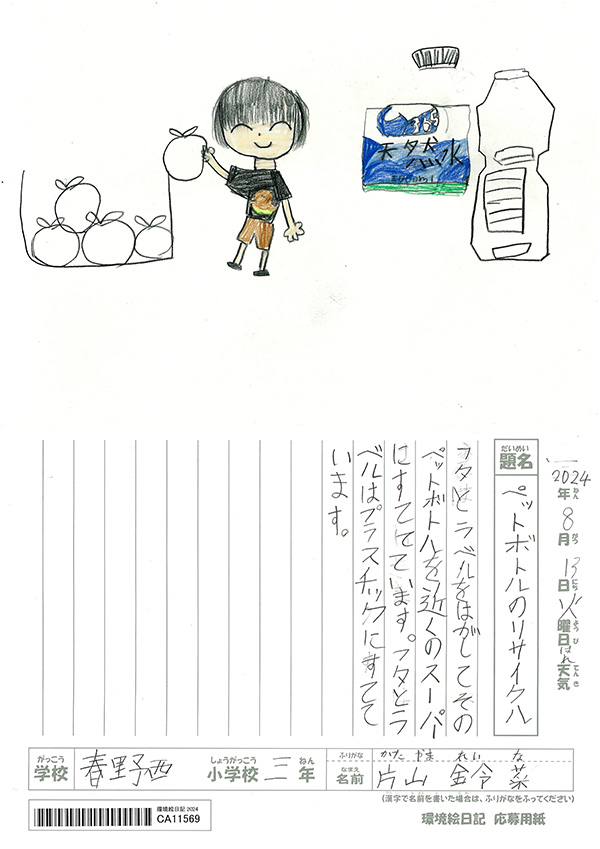 天然水
500ml
2024年8月13日火曜日はれ天気
ねん がつ にち ようび てんき
だいめい
題名 ペットボトルのリサイクル
フタとラベルをはがしてその
ペットボトルを近くのスーパー
にすてています。フタとラ
ベルはプラスチックにすてて
います。
がっこう しょうがっこう ねん ふりがな かた やま れい な
学校 春野西 小学校 三年 なまえ 名前 片山 鈴菜
(漢字で名前を書いた場合は、ふりがなをふってください)
環境絵日記2024
CA11569
環境絵日記 応募用紙